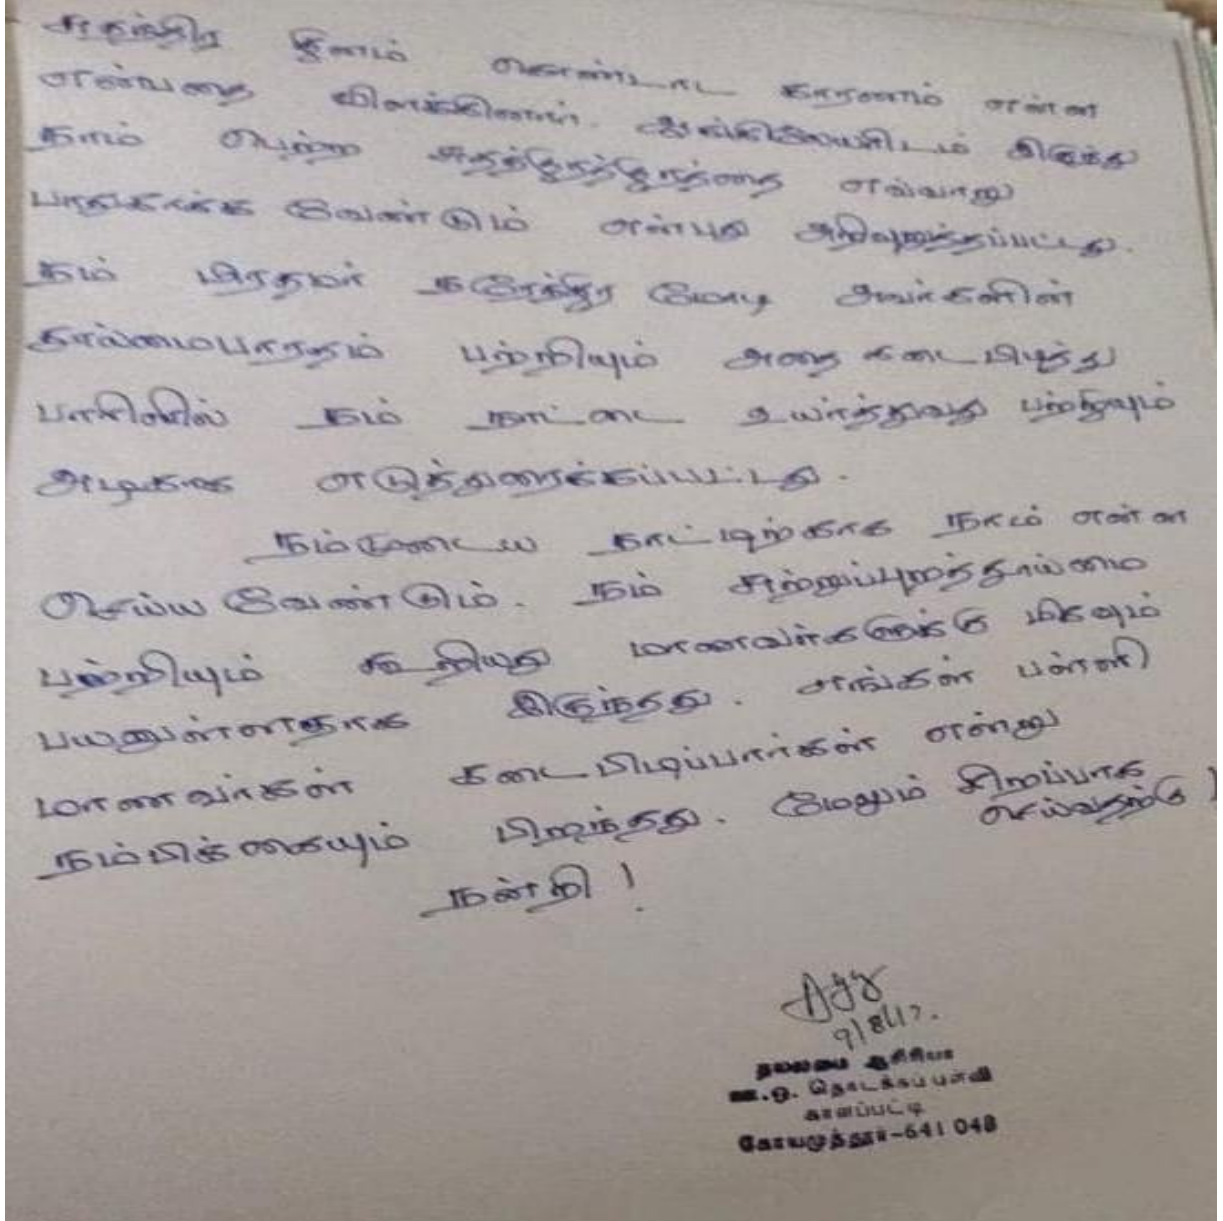 சுதந்திர தினம் கொண்டாட காரணம் என்ன
என்பதை விளக்கினார். ஆங்கிலேயரிடம் இருந்து
நாம் பெற்ற சுதந்திரத்தை எவ்வாறு
பாதுகாக்க வேண்டும் என்பது அறிவுறுத்தப்பட்டது.
நம் பிரதமர் நரேந்திர மோடி அவர்களின்
தூய்மைபாரதம் பற்றியும் அதை கடைபிடித்து
பாரினில் நம் நாட்டை உயர்த்துவது பற்றியும்
அழகாக எடுத்துரைக்கப்பட்டது.
நம்முடைய நாட்டிற்காக நாம் என்ன
செய்ய வேண்டும். நம் சுற்றுப்புறத்தூய்மை
பற்றியும் கூறியது மாணவர்களுக்கு மிகவும்
பயனுள்ளதாக இருந்தது. எங்கள் பள்ளி
மாணவர்கள் கடைபிடிப்பார்கள் என்று
நம்பிக்கையும் பிறந்தது. மேலும் சிறப்பாக
செய்வதற்கு!
நன்றி!
9/8/17.
தலைமை ஆசிரியர்
ஊ.ஒ. தொடக்கப்பள்ளி
காளப்பட்டி
கோயமுத்தூர்-641 048